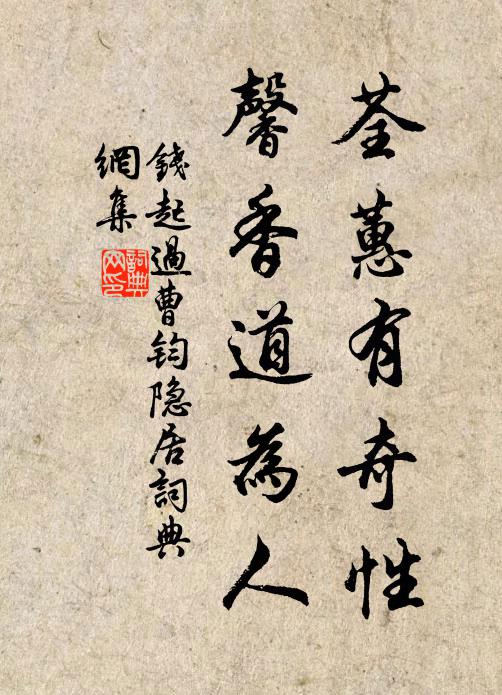 荃蕙有奇性
馨香道為人
錢起過曹鈞隐居詞典
網集
詞典網印